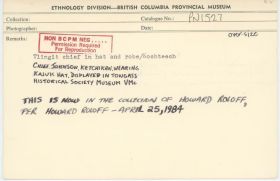 ETHNOLOGY DIVISION—BRITISH COLUMBIA PROVINCIAL MUSEUM
Collection: Catalogue No.: PN1527
Photographer: Date: oversize
Remarks:
NON BCPM NEG.
Permission Required
For Reproduction
Tlingit chief in hat and robe/
CHIEF JOHNSON, KETCHIKAN, WEARING
KAJUK HAT, DISPLAYED IN TONGASS
HISTORICAL SOCIETY MUSEUM
THIS IS NOW IN THE COLLECTION OF HOWARD ROLOFF,
PER HOWARD ROLOFF - APRIL 25, 1984